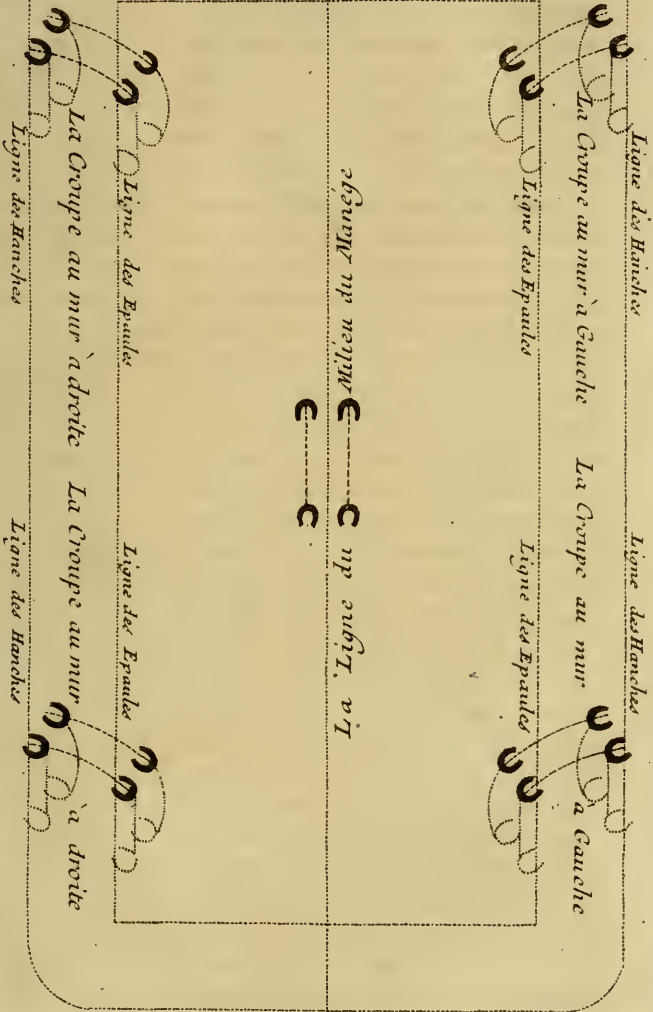 Ligne des Hanches
La Croupe au mur à Gauche
Ligne des Epaules
Ligne des Hanches
La Croupe au mur à Gauche
Ligne des Epaules
La Ligne du Milieu du Manége
Ligne des Epaules
La Croupe au mur à droite
Ligne des Hanches
Ligne des Epaules
La Croupe au mur à droite
Ligne des Hanches